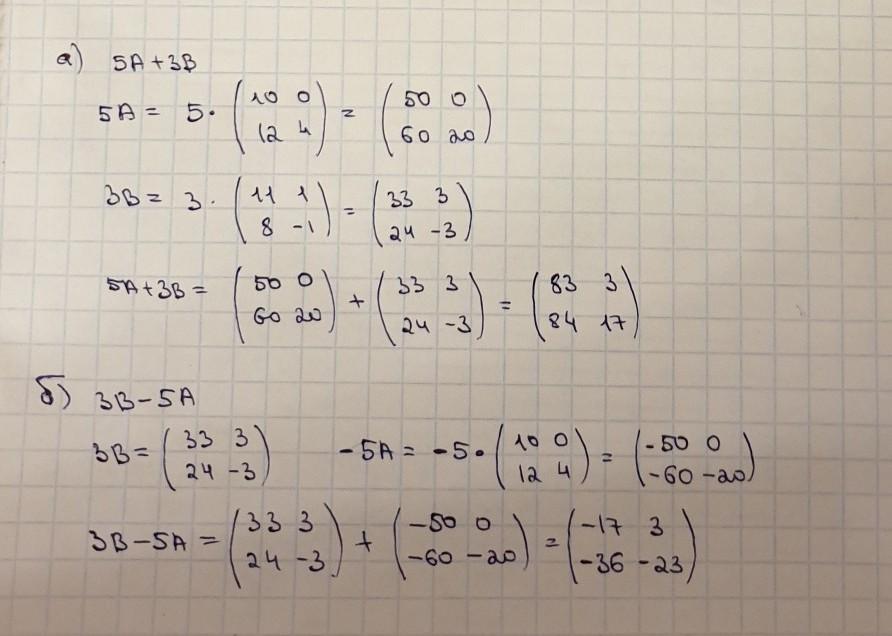 а) 5A+3B
5A = 5· (10 0 12 4) = (50 0 60 20)
3B = 3· (11 1 8 -1) = (33 3 24 -3)
5A+3B = (50 0 60 20) + (33 3 24 -3) = (83 3 84 17)
б) 3B-5A
3B = (33 3 24 -3) -5A = -5· (10 0 12 4) = (-50 0 -60 -20)
3B-5A = (33 3 24 -3) + (-50 0 -60 -20) = (-17 3 -36 -23)